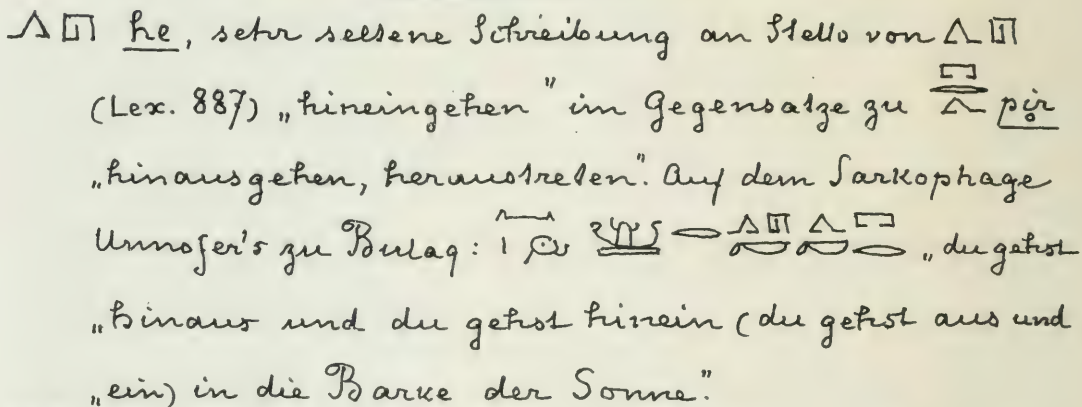 he, sehr seltene Schreibung an Stelle von
(Lex. 887) „hineingehen" im Gegensatze zu pir
„hinausgehen, heraustreten". Auf dem Sarkophage
Unnofer's zu Bulaq: „du gehst
„hinaus und du gehst hinein (du gehst aus und
„ein) in die Barke der Sonne."